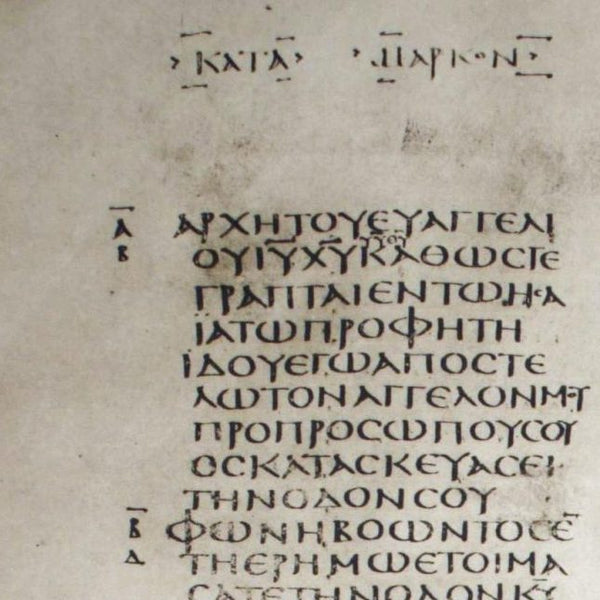 ΚΑΤΑ ΜΑΡΚΟΝ
Α̅ ΑΡΧΗΤΟΥΕΥΑΓΓΕΛΙ
Β ΟΥΙ̅Υ̅Χ̅Υ̅ΚΑΘΩϹΓΕ
ΓΡΑΠΤΑΙΕΝΤΩΗϹΑ
ΪΑΤΩΠΡΟΦΗΤΗ
ΪΔΟΥΕΓΩΑΠΟϹΤΕ
ΛΩΤΟΝΑΓΓΕΛΟΝΜΟΥ
ΠΡΟΠΡΟϹΩΠΟΥϹΟΥ
ΟϹΚΑΤΑϹΚΕΥΑϹΕΙ
ΤΗΝΟΔΟΝϹΟΥ
Β̅ ΦΩΝΗΒΟΩΝΤΟϹΕ̅
Δ ΤΗΕΡΗΜΩΕΤΟΙΜΑ
ϹΑΤΕΤΗΝΟΔΟΝΚ̅Υ̅